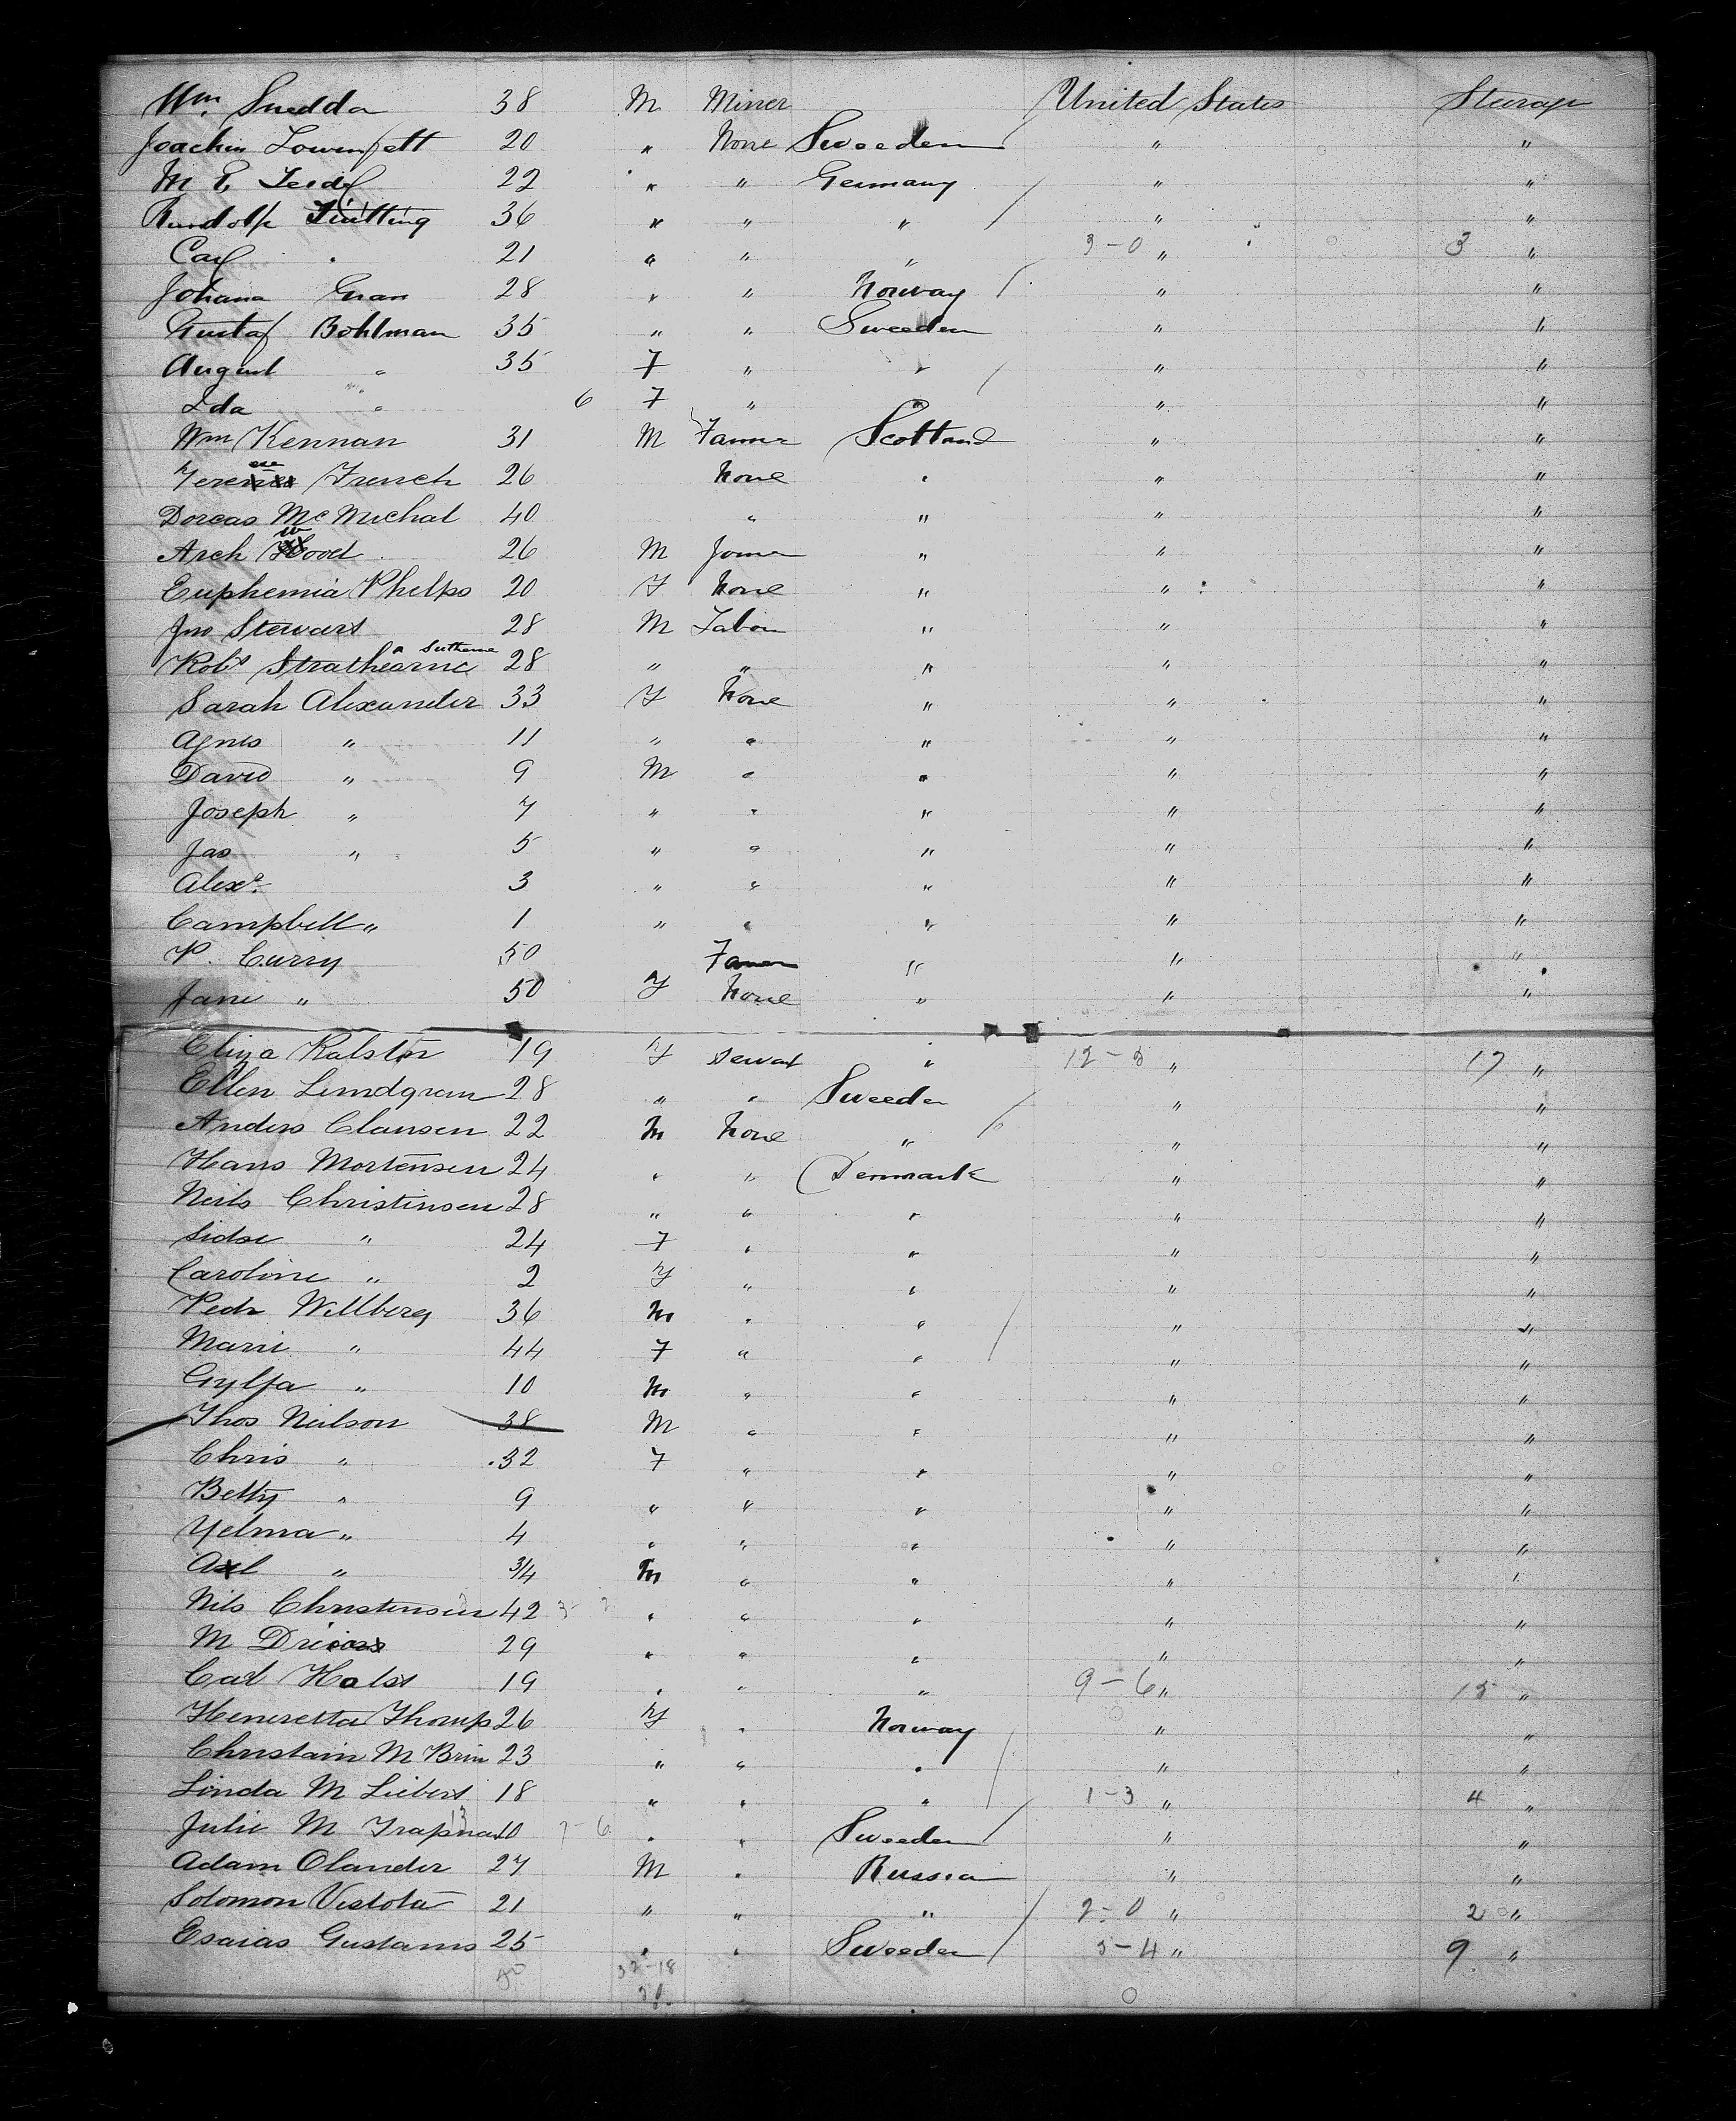 Wm. Snedda 38 M Miner United States Steerage
Joachim 20 " None Sweeden " "
M 22 " " Germany " "
Rundolf 36 " " " " "
Carl " 21 " " " 3-0 " 3 "
Johana Gran 28 " " Norway " "
Gustaf Bohlman 35 " " Sweeden " "
August " 35 F " " " "
Ida " 6 F " " " "
Wm Kennan 31 M Farmer Scotland " "
French 26 None " " "
Dorcas McMichal 40 " " " "
Arch Wood 26 M Joiner " " "
Euphemia Phelps 20 F None " " "
Jno Stewart 28 M Labor " " "
Robt Strathearne 28 " " " " "
Sarah Alexander 33 F None " " "
Agnes " 11 " " " " "
David " 9 M " " " "
Joseph " 7 " " " " "
Jas " 5 " " " " "
Alexr. 3 " " " " "
Campbell " 1 " " " " "
P. Curry 50 Farmer " " "
Jane " 50 F None " " "
Eliza Ralston 19 F Servat " 12-5 " 17 "
Ellen Lundgren 28 " " Sweeden " "
Anders Clausen 22 M None " " "
Hans Mortensen 24 " " Denmark " "
Neils Christinsen 28 " " " " "
Sidse " 24 F " " " "
Caroline " 2 F " " " "
Pedr Wellberg 36 M " " " "
Marie " 44 F " " " "
Gylfa " 10 M " " " "
Thos Neilson 38 M " " " "
Chris " 32 F " " " "
Betty " 9 " " " " "
Yelma " 4 " " " " "
Axel " 3/4 M " " " "
Nils Christensen 42 " " " " "
M 29 " " " " "
Carl Holst 19 " " " 9-6 " 15 "
Heneretta Thomp 26 F " Norway " "
Christain M Brin 23 " " " " "
Linda M Liebert 18 " " " 1-3 " 4 "
Julie M 10 " " Sweeden " "
Adam Olander 27 M " Russia " "
Solomon Vistota 21 " " " 2-0 " 2 "
Esaias Gustams 25 " " Sweeden 5-4 " 9 "
50 32-18
50